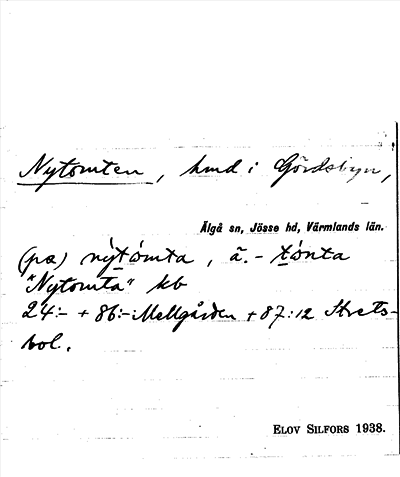 Nytomten, hmd i Gördsbyn,
Älgå sn, Jösse hd, Värmlands län.
(pæ) nỳtómta, ã. - tónta
"Nytomta" kb
24:- + 86:- Mellgården + 87:12 Strets-
bol.
ELOV SILFORS 1938.